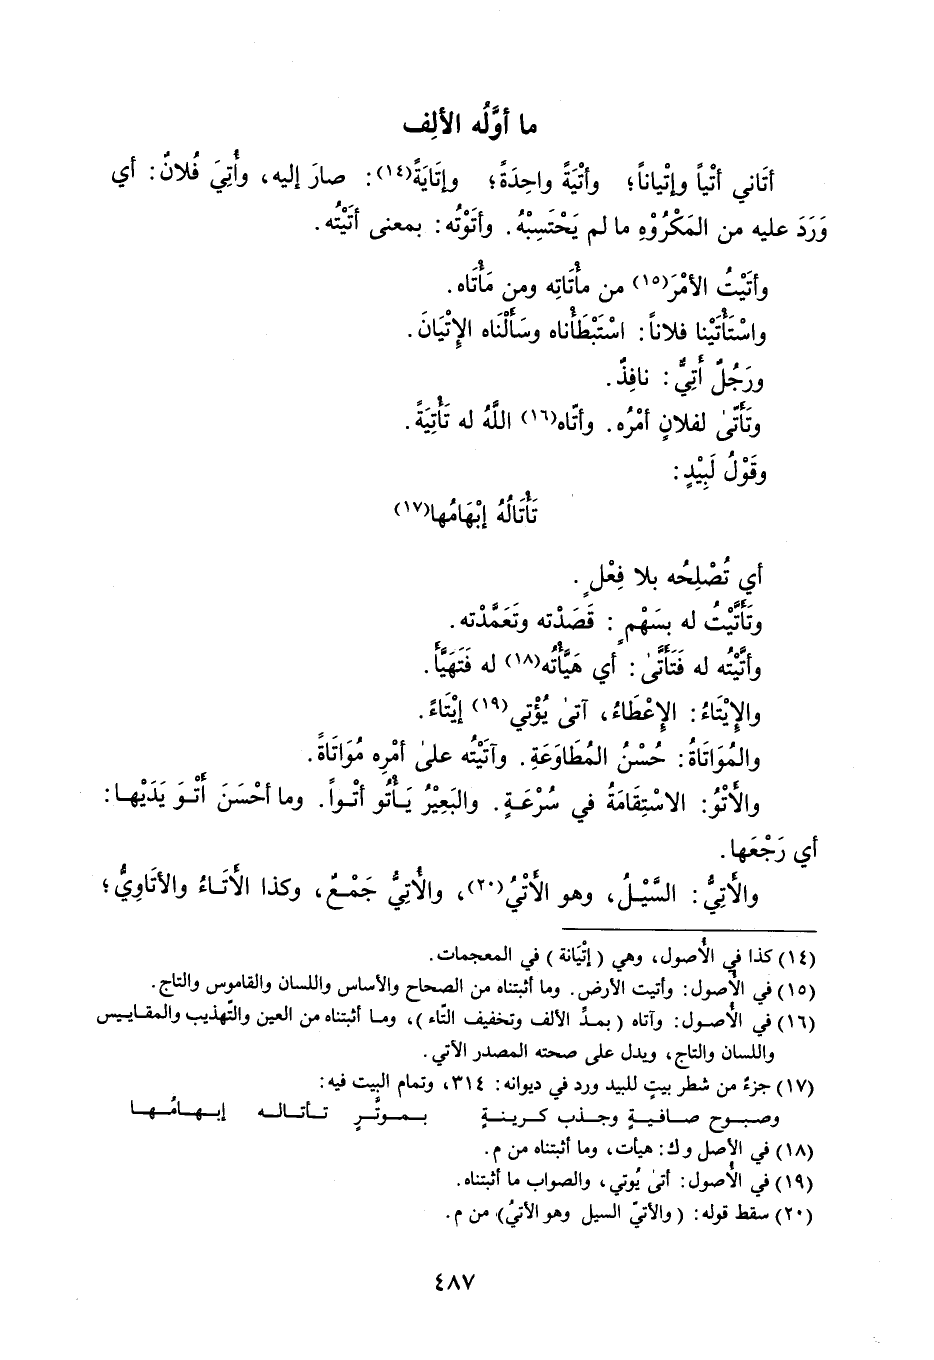 ما أوَّلُه الألِف
أتَاني أتْياً وإتْياناً؛ وأتْيَةً واحِدَةً؛ وإتَايَةً(١٤): صارَ إليه، وأُتِيَ فُلانٌ: أي
وَرَدَ عليه من المَكْرُوْهِ ما لم يَحْتَسِبْهُ. وأتَوْتُه: بمعنى أتَيْتُه.
وأتَيْتُ الأمْرَ(١٥) من مأْتَاتِه ومن مَأْتَاه.
واسْتَأْتَيْنا فلاناً: اسْتَبْطَأْناه وسَأَلْناه الإِتْيَانَ.
ورَجُلٌ أَتِيٌّ: نافِذٌ.
وتَأَتّىٰ لفلانٍ أمْرُه. وأتّاه(١٦) اللَّهُ له تَأْتِيَةً.
وقَوْلُ لَبِيْدٍ:
تَأْتَالُهُ إبْهَامُها(١٧)
أي تُصْلِحُه بلا فِعْلٍ.
وتَأَتَّيْتُ له بسَهْمٍ: قَصَدْته وتَعَمَّدْته.
وأتَّيْتُه له فَتَأَتَّىٰ: أي هَيَّأْتُه(١٨) له فَتَهَيَّأَ.
والإِيْتَاءُ: الإِعْطَاءُ، آتىٰ يُؤْتي(١٩) إيْتَاءً.
والمُوَاتَاةُ: حُسْنُ المُطَاوَعَةِ. وآتَيْتُه علىٰ أمْرِه مُوَاتَاةً.
والأَتْوُ: الاسْتِقَامَةُ في سُرْعَةٍ. والبَعِيْرُ يَأْتُو أتْواً. وما أحْسَنَ أَتْوَ يَدَيْها:
أي رَجْعَها.
والأَتِيُّ: السَّيْلُ، وهو الأَتْيُ(٢٠)، والأُتِيُّ جَمْعٌ، وكذا الأَتَاءُ والأتَاوِيُّ؛
(١٤) كذا في الأُصول، وهي (إتْيَانة) في المعجمات.
(١٥) في الأُصول: وأتيت الأرض. وما أثبتناه من الصحاح والأساس واللسان والقاموس والتاج.
(١٦) في الأُصول: وآتاه (بمدِّ الألف وتخفيف التّاء)، وما أثبتناه من العين والتّهذيب والمقاييس
واللسان والتاج، ويدل على صحته المصدر الآتي.
(١٧) جزءٌ من شطر بيتٍ للبيد ورد في ديوانه: ٣١٤، وتمام البيت فيه:
وصبوح صافيةٍ وجذب كرينةٍ بموتَّرٍ تأتاله إبهامُها
(١٨) في الأصل وك: هيأت، وما أثبتناه من م.
(١٩) في الأُصول: أتىٰ يُوتي، والصواب ما أثبتناه.
(٢٠) سقط قوله: (والأتيّ السيل وهو الأتيُ) من م.
٤٨٧